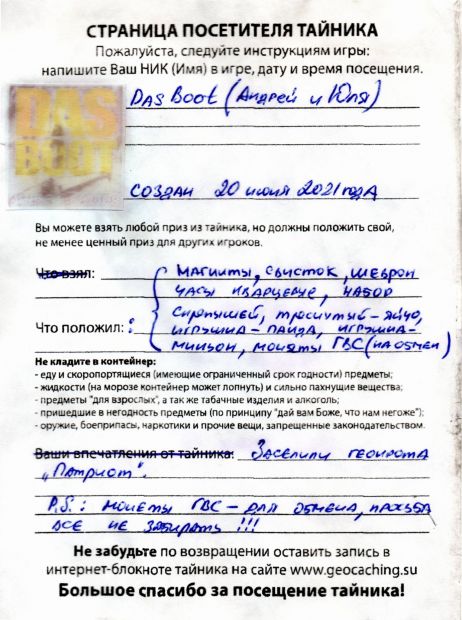 СТРАНИЦА ПОСЕТИТЕЛЯ ТАЙНИКА
Пожалуйста, следуйте инструкциям игры:
напишите Ваш НИК (Имя) в игре, дату и время посещения.
DAS BOOT
DAS BOOT (АНДРЕЙ И ЮЛЯ)
СОЗДАН 20 июня 2021 ГОДА
Вы можете взять любой приз из тайника, но должны положить свой,
не менее ценный приз для других игроков.
Что взял: МАГНИТЫ, СВИСТОК, ШЕВРОН
ЧАСЫ КВАРЦЕВЫЕ, НАБОР
Что положил: СКРЕПЫШЕЙ, ТРЕСНУТЫЙ-ЯЙЦО,
ИГРУШКА-ПАНДА, ИГРУШКА-
МИНЬОН, МОНЕТЫ ГВС (НА ОБМЕН)
Не кладите в контейнер:
- еду и скоропортящиеся (имеющие ограниченный срок годности) предметы;
- жидкости (на морозе контейнер может лопнуть) и сильно пахнущие вещества;
- предметы "для взрослых", а так же табачные изделия и алкоголь;
- пришедшие в негодность предметы (по принципу "дай вам Боже, что нам негоже");
- оружие, боеприпасы, наркотики и прочие вещи, запрещенные законодательством.
Ваши впечатления от тайника: ЗАСЕЛИЛИ ГЕОКРОТА
„ПАТРИОТ".
P.S.: МОНЕТЫ ГВС - ДЛЯ ОБМЕНА, ПРОСЬБА
ВСЕ НЕ ЗАБИРАТЬ !!!
Не забудьте по возвращении оставить запись в
интернет-блокноте тайника на сайте www.geocaching.su
Большое спасибо за посещение тайника!